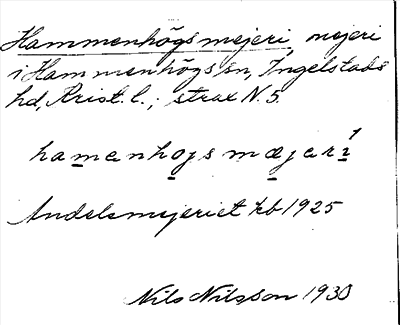 Hammenhögs mejeri, mejeri
i Hammenhögs sn, Ingelstads
hd, Krist. l.; strax N. 5.
hamenhojs mæjeri
Andelsmejeriet kb 1925
Nils Nilsson 1930